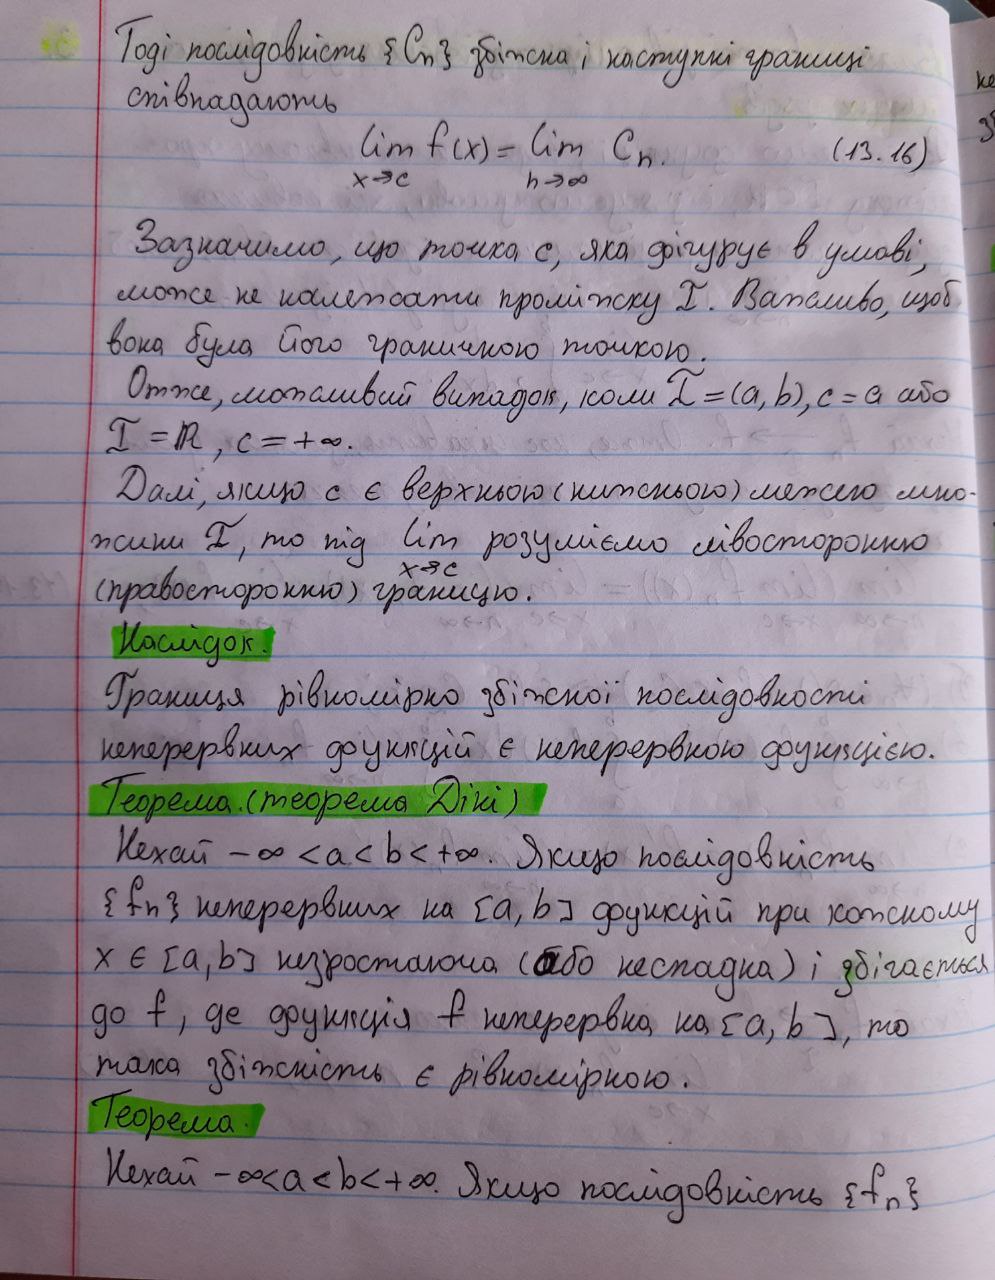 Тоді послідовність {Cₙ} збіжна і наступні границі
співпадають
lim f(x) = lim Cₙ. (13.16)
x→c n→∞
Зазначимо, що точка c, яка фігурує в умові,
може не належати проміжку I. Важливо, щоб
вона була його граничною точкою.
Отже, можливий випадок, коли I = (a, b), c = a або
I = ℝ, c = +∞.
Далі, якщо c є верхньою (нижньою) межею мно-
жини I, то під lim розуміємо лівосторонню
x→c
(правосторонню) границю.
Наслідок.
Границя рівномірно збіжної послідовності
неперервних функцій є неперервною функцією.
Теорема. (теорема Діні)
Нехай -∞ < a < b < +∞. Якщо послідовність
{fₙ} неперервних на [a, b] функцій при кожному
x ∈ [a, b] незростаюча (або неспадна) і збігається
до f, де функція f неперервна на [a, b], то
така збіжність є рівномірною.
Теорема.
Нехай -∞ < a < b < +∞. Якщо послідовність {fₙ}